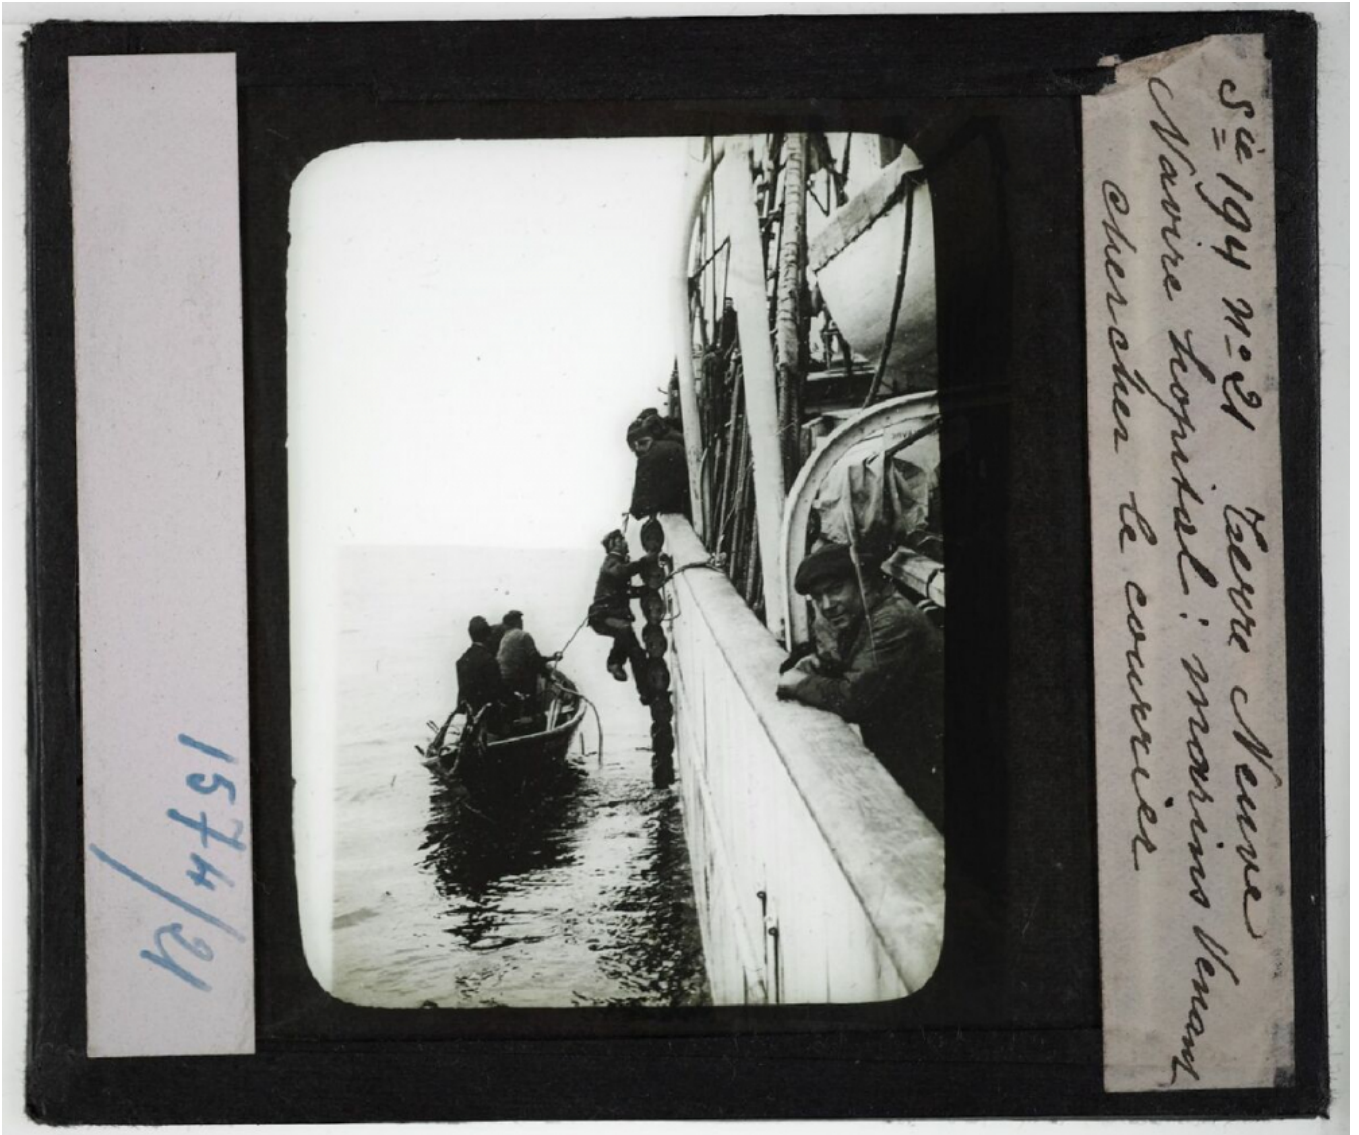 Sie 194 n° 21 Terre Neuve
Navire hopital : marins venant
chercher le courrier
1574/21